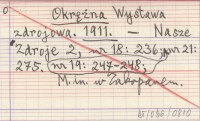 Okrężna Wystawa
zdrojowa. 1911. — Nasze
Zdroje 2, nr 18: 236; nr 21:
275. nr 19: 247-248;
M. in. w Zakopanem.